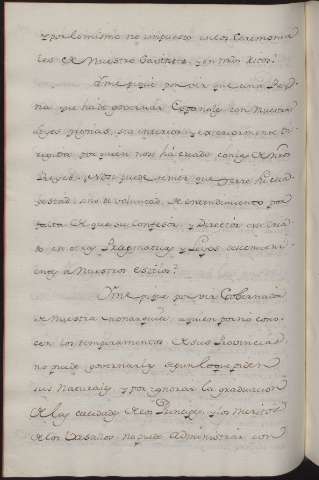 y por lo mismo no impuesto en los Ceremonia
les de Nuestro Gavinete, y en tran
Dime que por ver que una Rey
na que ha de governar España, con Nuestras
Leyes propias, sea interior, y exteriormente di
rigida por quien no se ha criado con las de Nros
Reynos, y No se puede temer que yerre su cui
dad, sino de voluntad, de entendimiento por
falta de que su Confesor, y Director es cria
do en otras Pragmaticas, y Leyes
a Nuestros estilos?
Dime que por ver Governada
Nuestra Monarquia, a quien por no cono
cer los temperamentos de sus Provincias,
no puede governarlas segun lo que piden
sus Naturales, y por ignorar la graduacion
de las calidades de los Principes, y los meritos
de los Vasallos no puede Administrar con